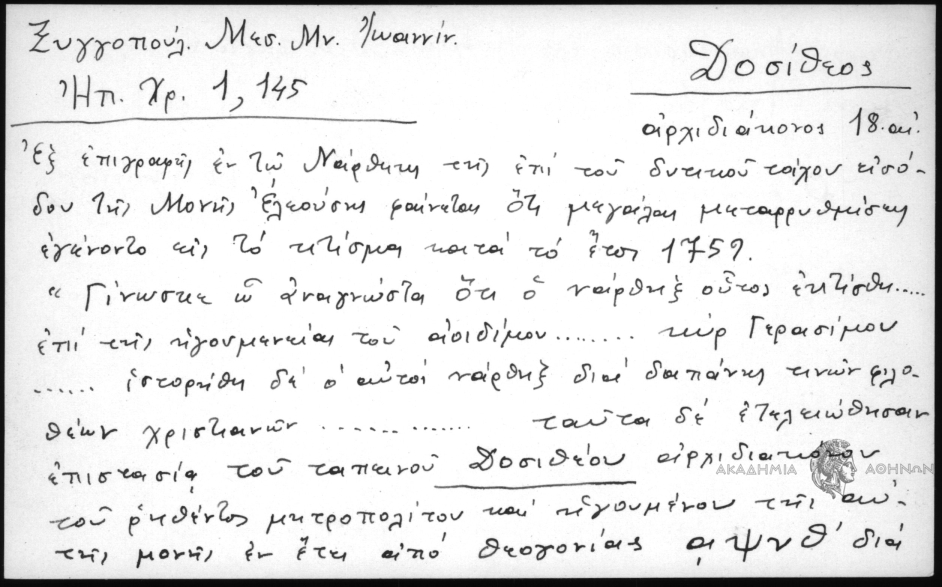 Ξυγγοπούλ. Μεσ. Μν. Ἰωαννίν.
Ἠπ. Χρ. 1, 145
Δοσίθεος
ἀρχιδιάκονος 18. αἰ.
Ἐξ ἐπιγραφῆς ἐν τῷ Νάρθηκι τῆς ἐπί τοῦ δυτικοῦ τοίχου εἰσό-
δου τῆς Μονῆς Ἐλεούσης φαίνεται ὅτι μεγάλαι μεταρρυθμίσεις
ἐγένοντο εἰς τό κτίσμα κατά τό ἔτος 1759.
" Γίνωσκε ὦ ἀναγνῶστα ὅτι ὁ νάρθηξ οὗτος ἐκτίσθη.....
ἐπί τῆς ἡγουμενείας τοῦ ἀοιδίμου........ κύρ Γερασίμου
...... ἱστορήθη δέ ὁ αὐτός νάρθηξ διά δαπάνης τινῶν φιλο-
θέων χριστιανῶν ............... ταῦτα δέ ἐτελειώθησαν
ἐπιστασίᾳ τοῦ ταπεινοῦ Δοσιθέου ἀρχιδιακόνου
ΑΚΑΔΗΜΙΑ ΑΘΗΝΩΝ
τοῦ ῥηθέντος μητροπολίτου καί ἡγουμένου τῆς αὐ-
τῆς μονῆς ἐν ἔτει ἀπό θεογονίας αψνθ' διά